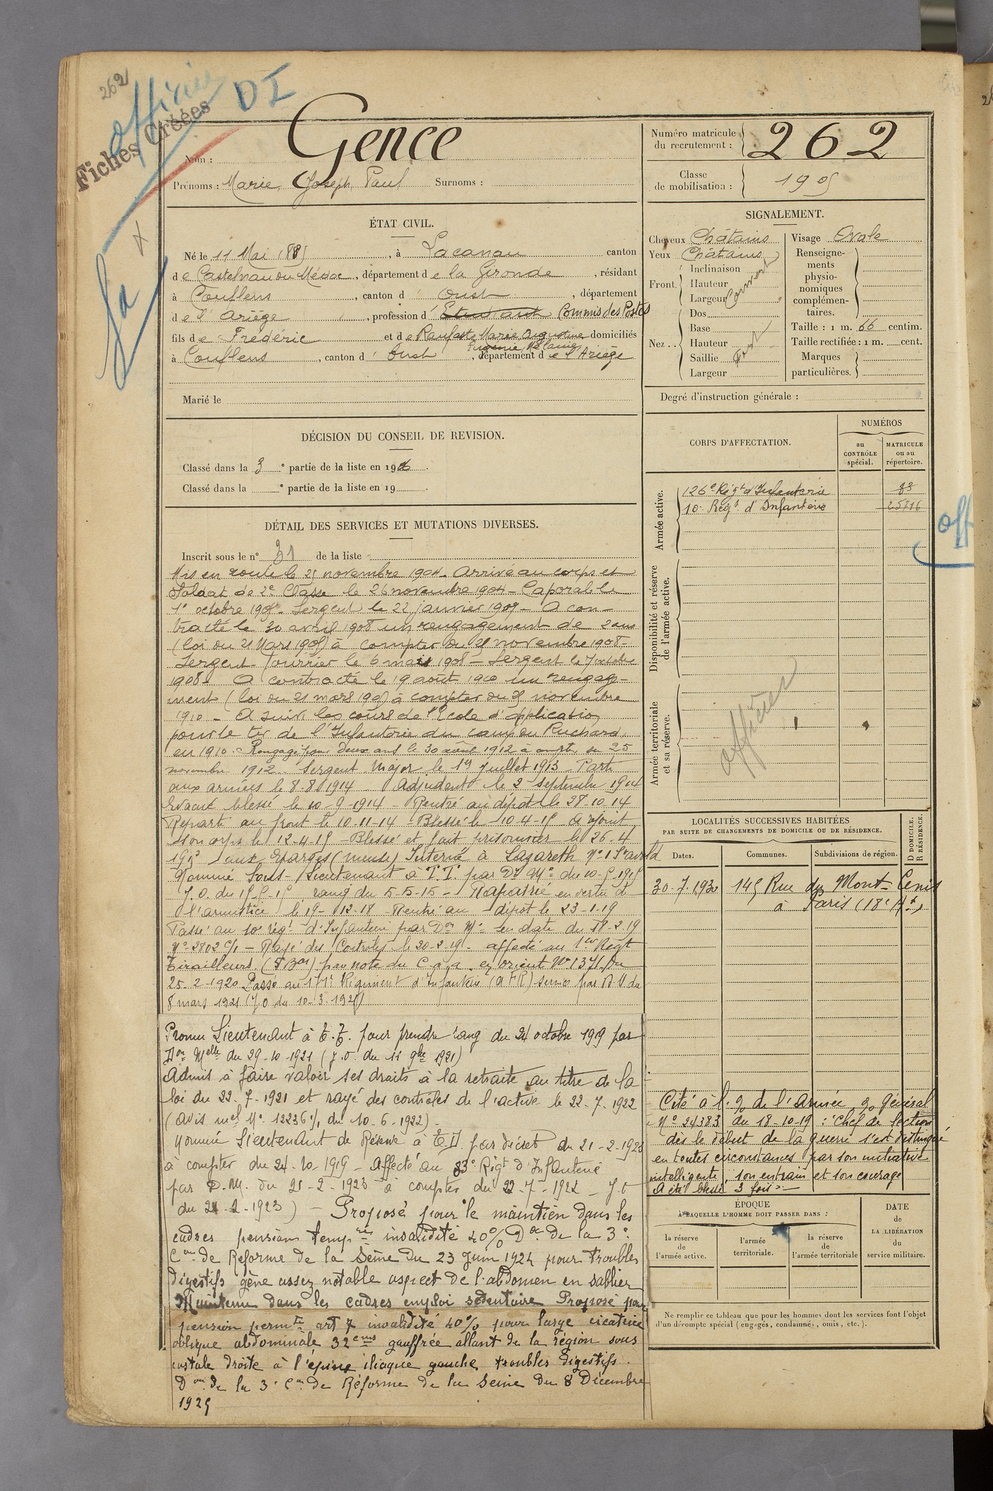 262
officier
D I
Fiches Créées
Nom : Gence
Prénoms : Marie Joseph Paul Surnoms :
Numéro matricule du recrutement : 262
Classe de mobilisation : 1905
ÉTAT CIVIL.
Né le 11 Mai 188 , à Lacanau canton
de Castelnau du Médoc, département de la Gironde, résidant
à Couflens, canton d' Oust, département
de l'Ariège, profession d' Commis des Postes
fils de Frédéric et de Marie Augustine domiciliés
à Couflens, canton d' Oust, département de l'Ariège
Marié le
SIGNALEMENT.
Cheveux Châtains
Yeux Châtains
Front. Inclinaison
Hauteur
Largeur
Nez .. Dos
Base
Hauteur
Saillie
Largeur
Visage Ovale
Renseignements physionomiques complémentaires.
Taille : 1 m. 66 centim.
Taille rectifiée : 1 m. cent.
Marques particulières.
Degré d'instruction générale :
DÉCISION DU CONSEIL DE REVISION.
Classé dans la 3 e partie de la liste en 190
Classé dans la e partie de la liste en 19
CORPS D'AFFECTATION.
NUMÉROS
au CONTRÔLE spécial.
MATRICULE ou au répertoire.
Armée active.
126e Régt d'Infanterie
10e Régt d'Infanterie
Disponibilité et réserve de l'armée active.
Armée territoriale et sa réserve.
officier
off
DÉTAIL DES SERVICES ET MUTATIONS DIVERSES.
Inscrit sous le n° 31 de la liste
Mis en route le 25 novembre 1904. Arrivé au corps et
Soldat de 2e Classe le 26 novembre 1904 - Caporal le
1er octobre 190 . Sergent le 22 janvier 190 - A con-
tracté le 30 avril 1908 un rengagement de 2 ans
(loi du 21 Mars 1905) à compter du novembre 1908.
Sergent Fourrier le 6 mars 1908 - Sergent le octobre
1908. A contracté le 19 août 1910 un rengage-
ment (loi du 21 mars 1905) à compter du novembre
1910 - A suivi les cours de l'École d'application
pour le tir de l'Infanterie du camp du Ruchard
en 1910. Rengagé pour deux ans le 30 avril 1912 à compter du 25
novembre 1912. Sergent Major le 19 Juillet 1913. Parti
aux armées le 8.8.1914 Adjudant le 2 Septembre 1914
Evacué blessé le 10-9-1914 - Rentré au dépôt le 28.10.14
Reparti au front le 10-11-14 - Blessé le 10-4-15 a rejoint
son corps le 12-4-15 - Blessé et fait prisonnier le 26.4
1915 aux Eparges (Meuse) Interné à Lazareth
Nommé Sous-Lieutenant à T.T. par
rang du 5-5-15 - Rapatrié en vertu de
l'armistice le 19-12-18 Rentré au dépôt le 23-1-19
Passé au 10e rég. d'Infanterie par en date du
Rayé des Contrôles le 20-2-19. affecté au 1er Régt
Tirailleurs par note du C.a.a. en orient du
25-2-1920 Passé au Régiment d'Infanterie
8 mars 1921 (J.O du 10-3-1921)
Promu Lieutenant à T.T. pour prendre rang du 24 octobre 1919 par
Don Melle du 29-10-1921 (J.O du 11 9bre 1921)
Admis à faire valoir ses droits à la retraite au titre de la
loi du 22-7-1921 et rayé des contrôles de l'active le 22-7-1922
(avis mel No 13236 du 10-6-1922)
Nommé Lieutenant de Réserve à T.D par décret du 21-2-1923
à compter du 24-10-1919 - Affecté au 83e Régt d'Infanterie
par D.M. du 21-2-1923 à compter du 22-7-1922 - J.O
du 24-2-1923) - Proposé pour le maintien dans les
cadres pension tempre invalidité 40% Don de la 3e
Con de Réforme de la Seine du 23 Juin 1924 pour troubles
digestifs gêne assez notable aspect de l'abdomen en sablier
Maintenu dans les cadres emploi sédentaire Proposé pour
pension permte art 7 invalidité 40% pour large cicatrice
oblique abdominale 32 cms gauffrée allant de la région sous
costale droite à l'épine iliaque gauche troubles digestifs.
Don de la 3e Con de Réforme de la Seine du 8 Décembre
1925
LOCALITÉS SUCCESSIVES HABITÉES
PAR SUITE DE CHANGEMENTS DE DOMICILE OU DE RÉSIDENCE.
Dates.
Communes.
Subdivisions de région.
D DOMICILE. R RÉSIDENCE.
30-7-1930 145 Rue du Mont-Cenis
à Paris (18e Art)
Cité à l'o/ de l'Armée, o/ général
No 24383 du 18-10-19 : "Chef de section
dès le début de la guerre s'est distingué
en toutes circonstances par son initiative
intelligente, son entrain et son courage
A été blessé 3 fois"
ÉPOQUE
À LAQUELLE L'HOMME DOIT PASSER DANS :
la réserve de l'armée active.
l'armée territoriale.
la réserve de l'armée territoriale
DATE de LA LIBÉRATION du service militaire.
Ne remplir ce tableau que pour les hommes dont les services font l'objet
d'un décompte spécial (engagés, condamnés, omis, etc.).